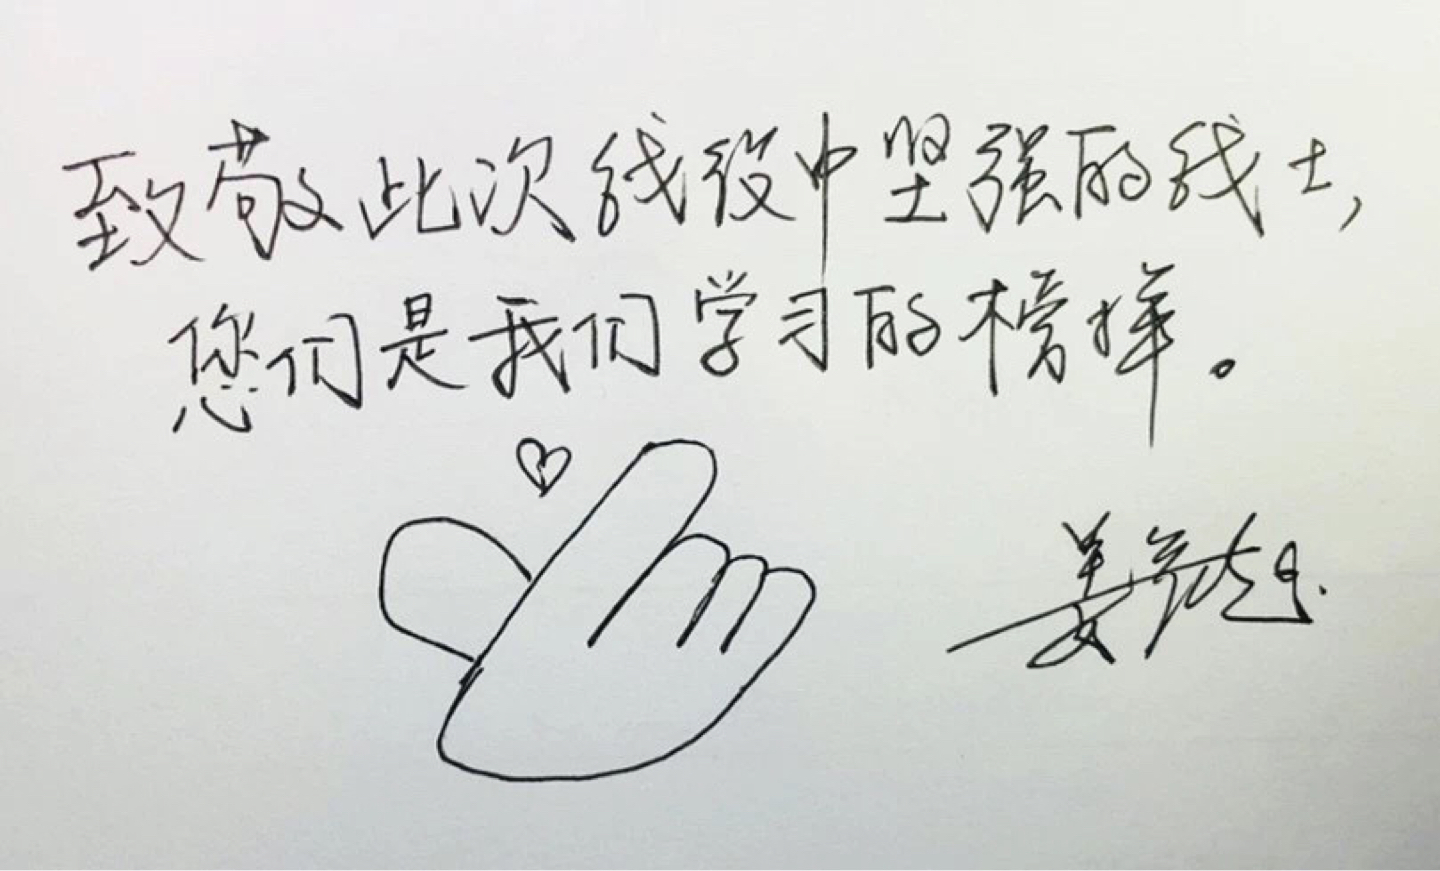 致敬此次战役中坚强的战士,
您们是我们学习的榜样。